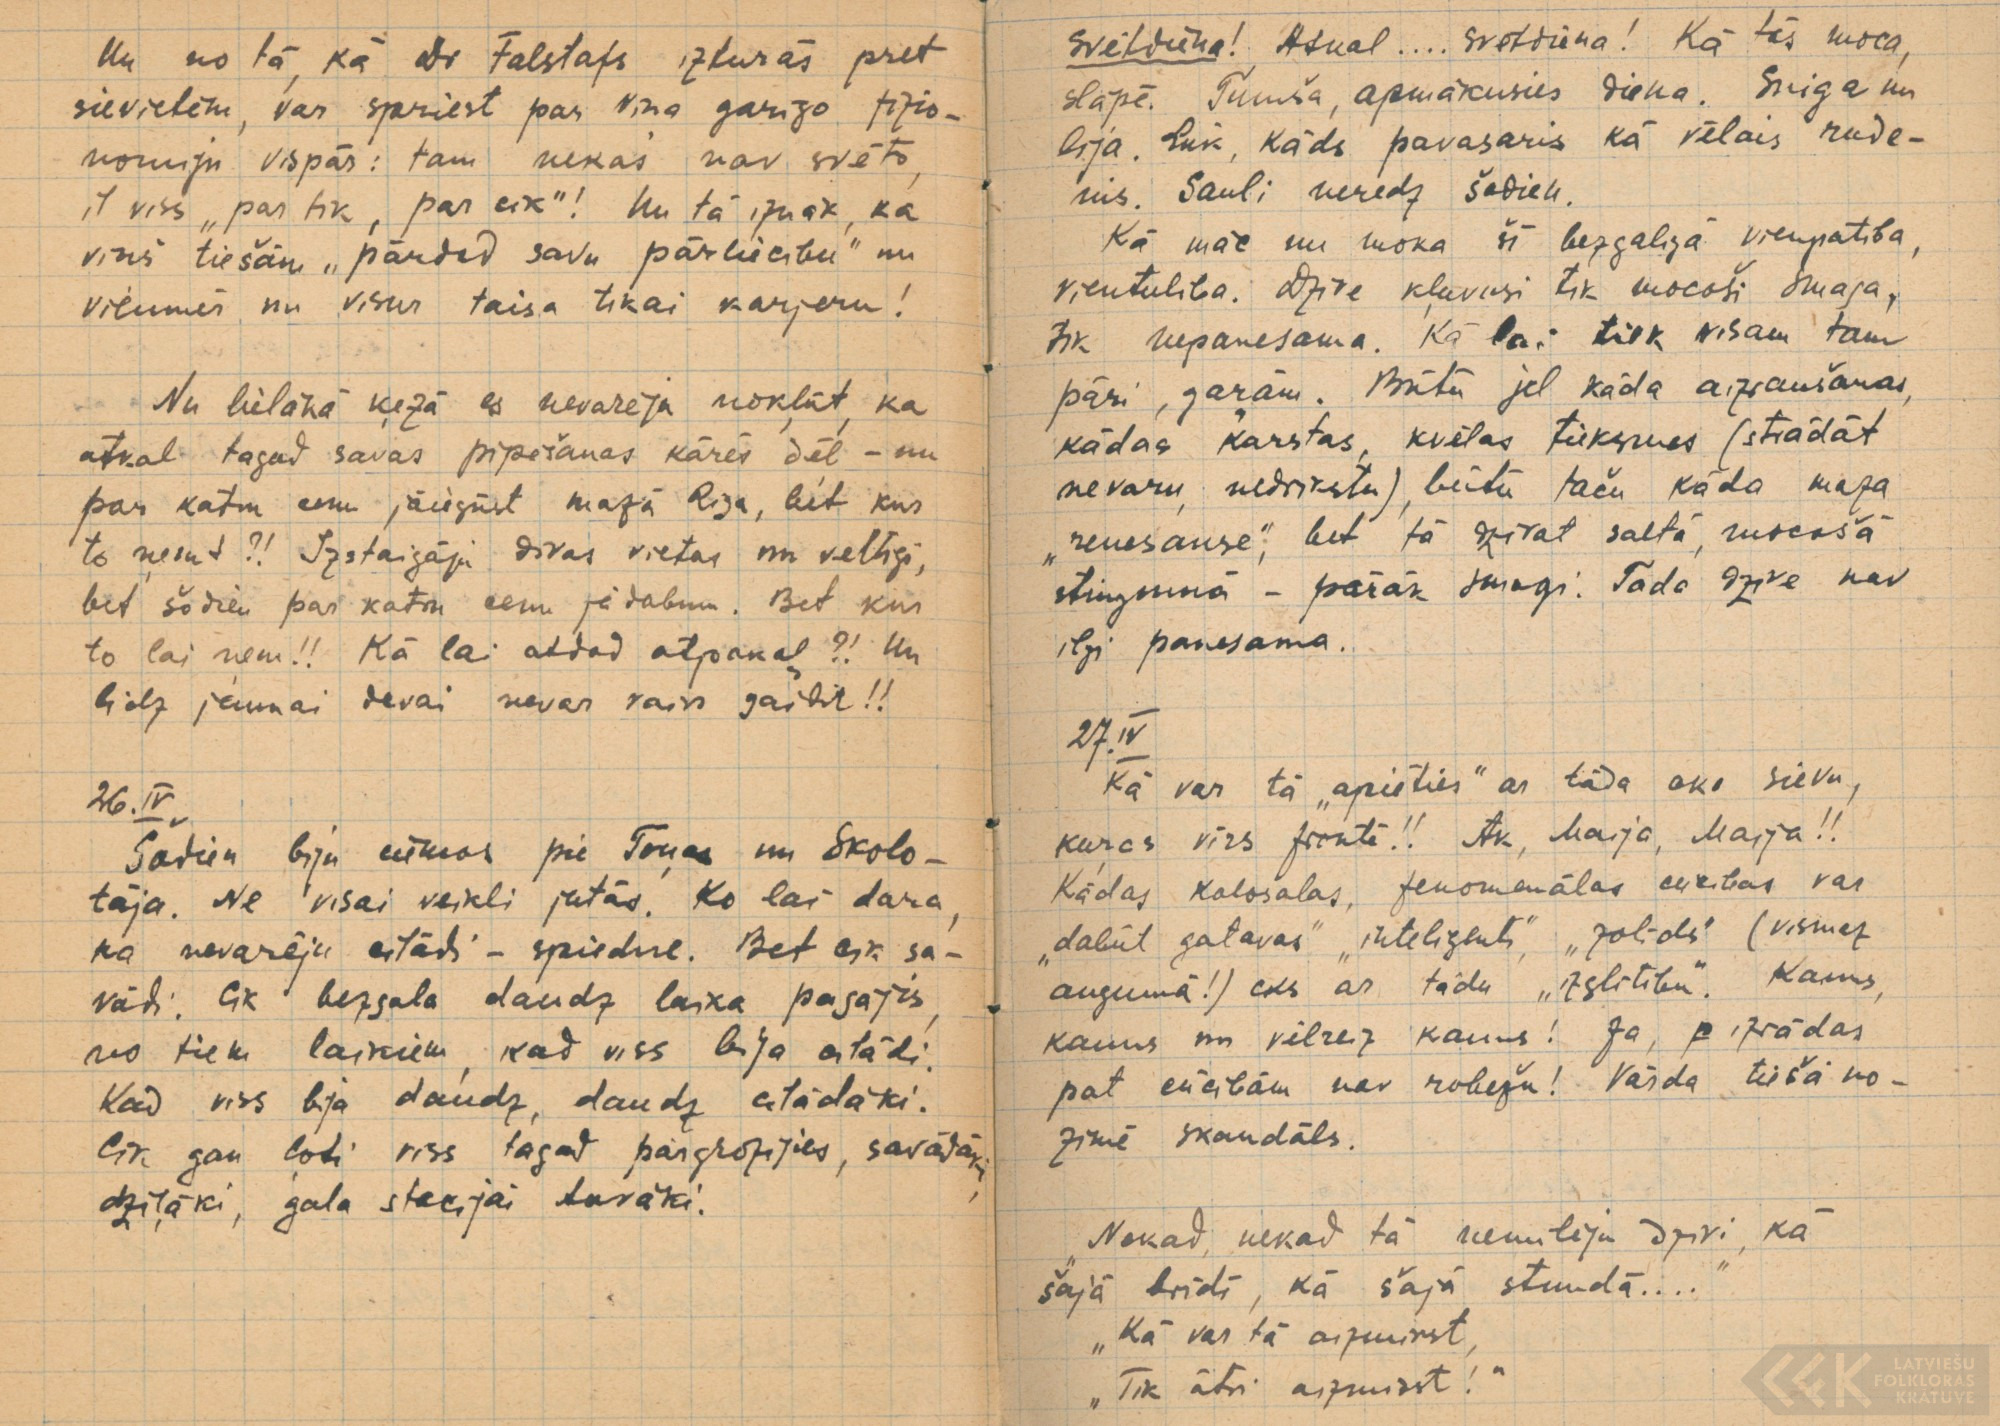 Un no tā, kā Dr Falstafs izturās pret
sievietēm, var spriest par viņa garīgo fizio-
nomiju vispār: tam nekas nav svēts,
it viss „par tik, par cik"! Un tā iznāk, ka
viņš tiešām „pārdod savu pārliecību" un
vienmēr un visur taisa tikai karjeru!
Nu lielākā ķezā es nevarēju nokļūt, ka
atkal tagad savas pīpēšanas kāres dēļ – nu
par katru cenu jāiegūst mazā Rīga, bet kur
to ņemt?! Izstaigāju divas vietas un veltīgi,
bet šodien par katru cenu jādabūn. Bet kur
to lai ņem!! Kā lai atdod atpakaļ?! Un
līdz jaunai devai nevar vairs gaidīt!!
26.IV
Šodien biju ciemos pie Toņas un Skolo-
tāja. Ne visai veikli jutās. Ko lai dara,
ka nevarēju citādi – spiedne. Bet cik sa-
vādi. Cik bezgala daudz laika pagājis,
no tiem laikiem, kad viss bija citādi.
Kad viss bija daudz, daudz citādāki.
Cik gan ļoti viss tagad pārgrozījies, savādāki,
dziļāki, gala stacijai tuvāki.
Svētdiena! Atkal.... svētdiena! Kā tās moca,
slāpē. Tumša, apmākusies diena. Sniga un
lija. Lūk, kāds pavasaris kā vēlais rude-
nis. Sauli neredz šodien.
Kā māc un moka šī bezgalīgā vienpatība,
vientulība. Dzīve kļuvusi tik mocoši smaga,
tik nepanesama. Kā lai tiek visam tam
pāri, garām. Būtu jel kāda aizraušanās,
kādas karstas, kvēlas tieksmes (strādāt
nevaru, nedrīkstu), būtu taču kāda maza
„renesanse", bet tā dzīvot saltā, mocošā
stingumā – pārāk smagi. Tāda dzīve nav
ilgi panesama.
27.IV
Kā var tā „apieties" ar tāda sievu,
kuŗas vīrs frontē!! Ak, Maija, Maija!!
Kādas kolosālas, fenomenālas cūcības var
„dabūt gatavas" „inteliģents", „solīds" (vismaz
augumā!) eks ar tādu „izglītību". Kauns,
kauns un vēlreiz kauns! Ja, izrādās
pat cūcībām nav robežu! Vārda tiešā no-
zīmē skandāls.
„Nekad, nekad tā nemīlēju dzīvi, kā
šajā brīdī, kā šajā stundā...."
„Kā var tā aizmirst,
„Tik ātri aizmirst!"
LATVIEŠU
FOLKLORAS
KRĀTUVE